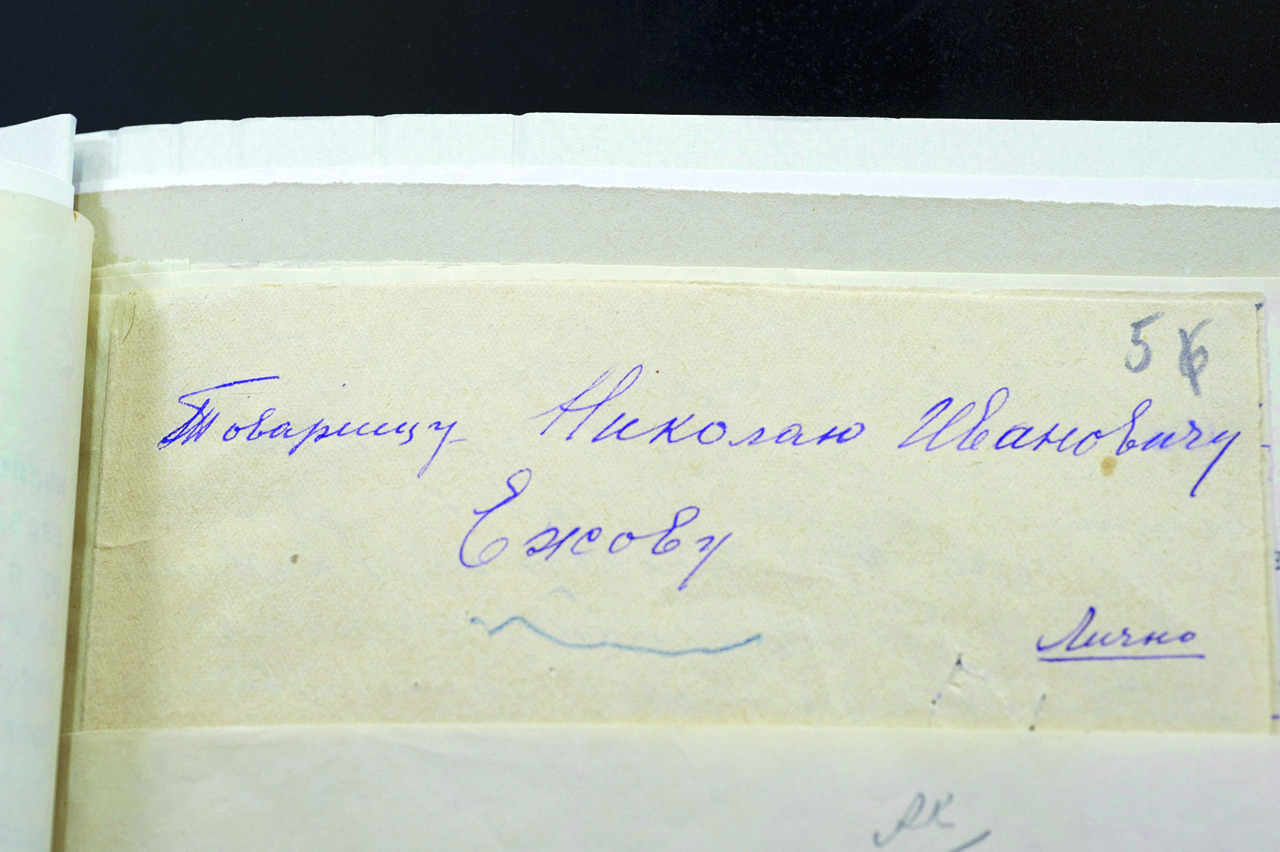 56
Товарищу Николаю Ивановичу
Ежову
Лично
АК